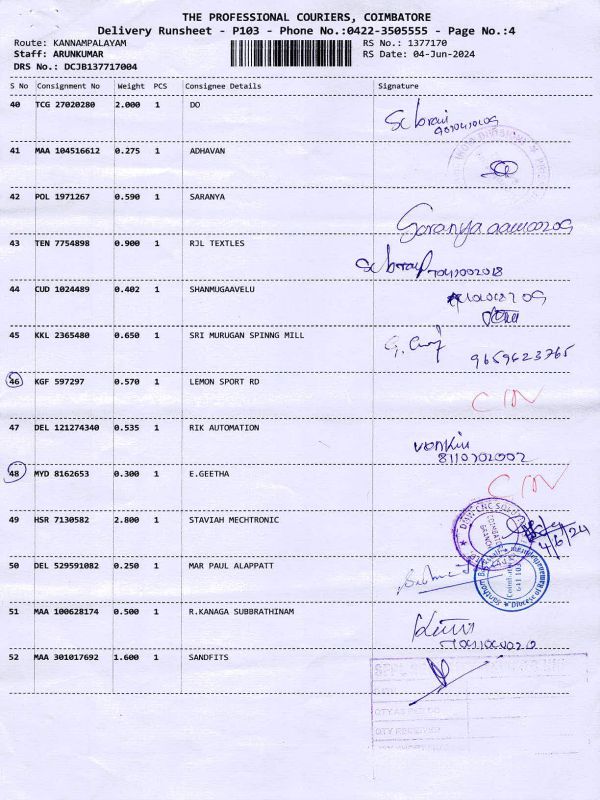 THE PROFESSIONAL COURIERS, COIMBATORE
Delivery Runsheet - P103 - Phone No.:0422-3505555 - Page No.:4
Route: KANNAMPALAYAM RS No.: 1377170
Staff: ARUNKUMAR RS Date: 04-Jun-2024
DRS No.: DCJB137717004
S No Consignment No Weight PCS Consignee Details Signature
40 TCG 27020280 2.000 1 DO
41 MAA 104516612 0.275 1 ADHAVAN
42 POL 1971267 0.590 1 SARANYA
Saranya
43 TEN 7754898 0.900 1 RJL TEXTLES
44 CUD 1024489 0.402 1 SHANMUGAAVELU
45 KKL 2365480 0.650 1 SRI MURUGAN SPINNG MILL
9659623765
46 KGF 597297 0.570 1 LEMON SPORT RD
47 DEL 121274340 0.535 1 RIK AUTOMATION
8110202002
48 MYD 8162653 0.300 1 E.GEETHA
49 HSR 7130582 2.800 1 STAVIAH MECHTRONIC
4/6/24
50 DEL 529591082 0.250 1 MAR PAUL ALAPPATT
51 MAA 100628174 0.500 1 R.KANAGA SUBBRATHINAM
52 MAA 301017692 1.600 1 SANDFITS
QTY RECEIVED